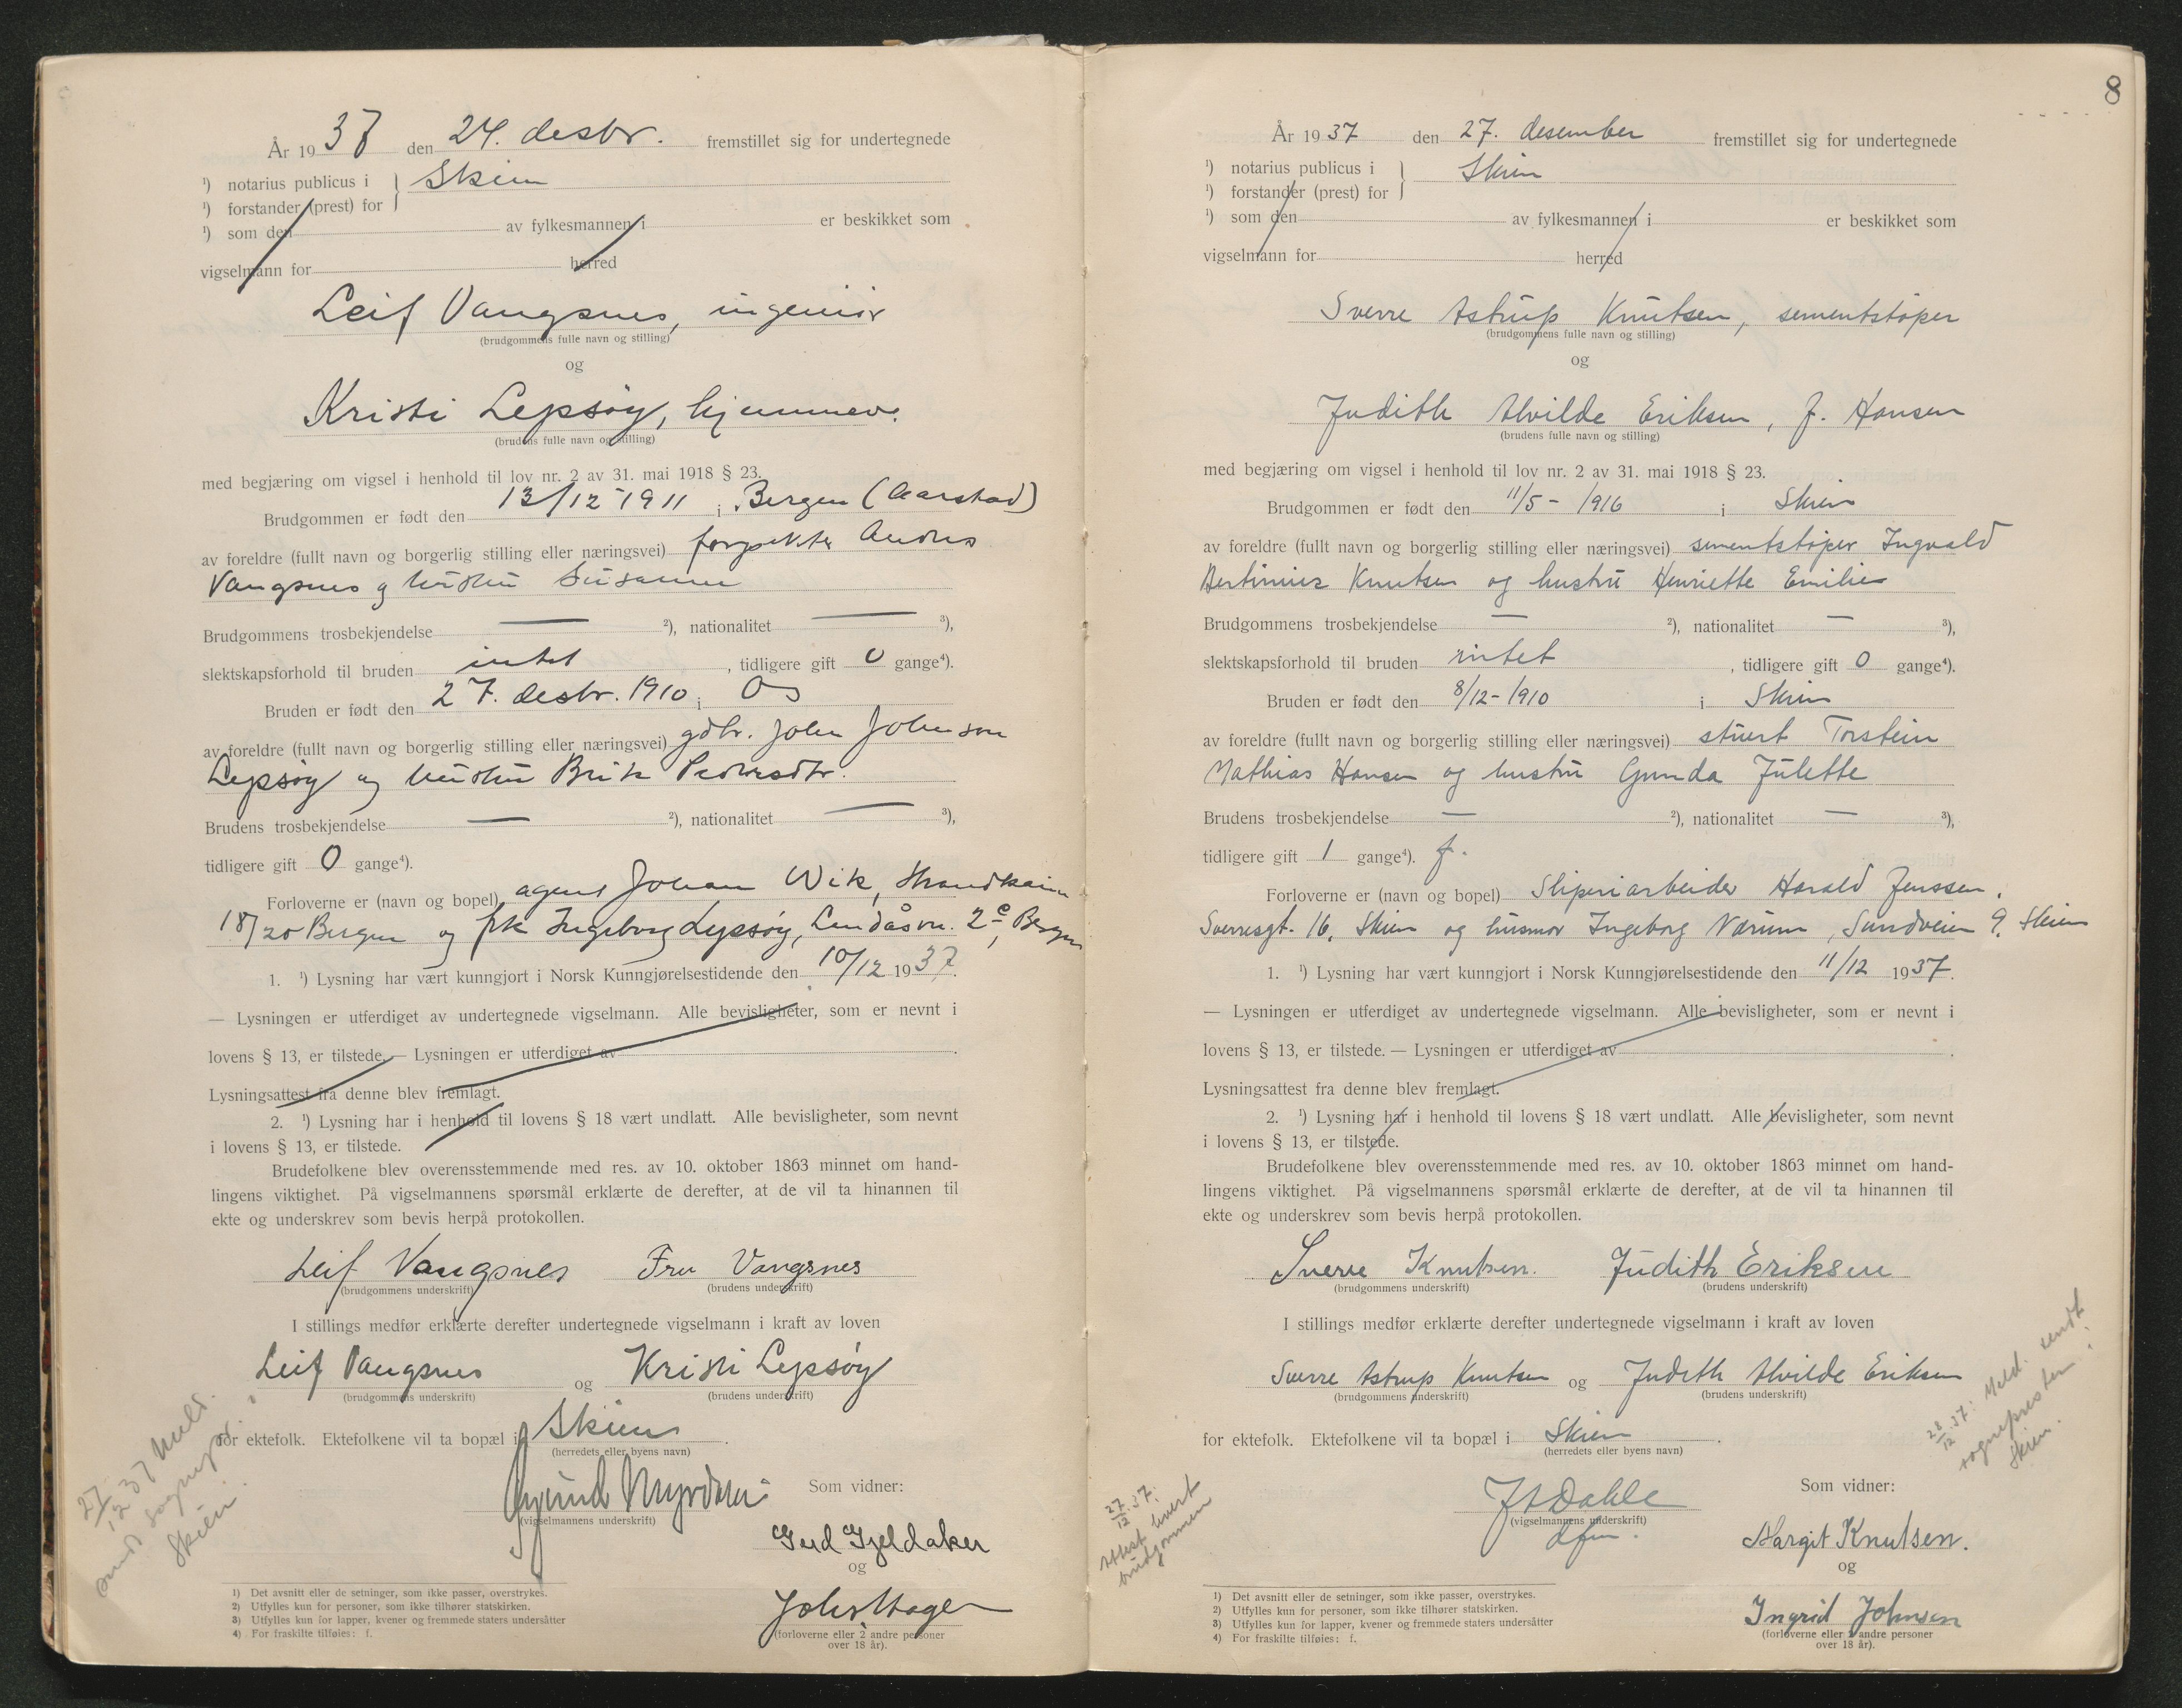 År 1937 den 24. desbr. fremstillet sig for undertegnede
¹) notarius publicus i } Skien
¹) forstander (prest) for
¹) som den av fylkesmannen i er beskikket som
vigselmann for herred
Leif Vangsnes, ingeniör
(brudgommens fulle navn og stilling)
og
Kristi Lepsöy, hjemmev.
(brudens fulle navn og stilling)
med begjæring om vigsel i henhold til lov nr. 2 av 31. mai 1918 § 23.
Brudgommen er født den 13/12-1911 i Bergen (Aarstad)
av foreldre (fullt navn og borgerlig stilling eller næringsvei) Anders
Vangsnes og hustru Susanne
Brudgommens trosbekjendelse — ²), nationalitet — ³),
slektskapsforhold til bruden intet, tidligere gift 0 gange⁴).
Bruden er født den 27. desbr. 1910 i Os
av foreldre (fullt navn og borgerlig stilling eller næringsvei) gdbr. John Johnson
Lepsöy og hustru Brita Pedersdtr.
Brudens trosbekjendelse — ²), nationalitet — ³),
tidligere gift 0 gange⁴).
Forloverne er (navn og bopel) agent Johan Wik, Strandkaien
18/20 Bergen og frk Ingeborg Lepsöy, Landåsvn. 2c, Bergen
1. ¹) Lysning har vært kunngjort i Norsk Kunngjørelsestidende den 10/12 1937.
— Lysningen er utferdiget av undertegnede vigselmann. Alle bevisligheter, som er nevnt i
lovens § 13, er tilstede. — Lysningen er utferdiget av
Lysningsattest fra denne blev fremlagt.
2. ¹) Lysning har i henhold til lovens § 18 vært undlatt. Alle bevisligheter, som nevnt
i lovens § 13, er tilstede.
Brudefolkene blev overensstemmende med res. av 10. oktober 1863 minnet om hand-
lingens viktighet. På vigselmannens spørsmål erklærte de derefter, at de vil ta hinannen til
ekte og underskrev som bevis herpå protokollen.
Leif Vangsnes Fru Vangsnes
(brudgommens underskrift) (brudens underskrift)
I stillings medfør erklærte derefter undertegnede vigselmann i kraft av loven
Leif Vangsnes og Kristi Lepsöy
(brudgommens underskrift) (brudens underskrift)
for ektefolk. Ektefolkene vil ta bopæl i Skien.
(herredets eller byens navn)
27/12 37 Meld.
sendt sognepr. i
Skien.
Som vidner:
(vigselmannens underskrift)
Gjeldaker
og
John Hagen
(forloverne eller 2 andre personer
over 18 år).
1) Det avsnitt eller de setninger, som ikke passer, overstrykes.
2) Utfylles kun for personer, som ikke tilhører statskirken.
3) Utfylles kun for lapper, kvener og fremmede staters undersåtter
4) For fraskilte tilføies: f.
8
År 1937 den 27. desember fremstillet sig for undertegnede
¹) notarius publicus i } Skien
¹) forstander (prest) for
¹) som den av fylkesmannen i er beskikket som
vigselmann for herred
Sverre Astrup Knutsen, sementstøper
(brudgommens fulle navn og stilling)
og
Judith Alvilde Eriksen, f. Hansen
(brudens fulle navn og stilling)
med begjæring om vigsel i henhold til lov nr. 2 av 31. mai 1918 § 23.
Brudgommen er født den 11/5 - 1916 i Skien
av foreldre (fullt navn og borgerlig stilling eller næringsvei) sementstøper Ingvald
Bertinius Knutsen og hustru Henriette Emilie
Brudgommens trosbekjendelse — ²), nationalitet — ³),
slektskapsforhold til bruden intet, tidligere gift 0 gange⁴).
Bruden er født den 8/12 - 1910 i Skien
av foreldre (fullt navn og borgerlig stilling eller næringsvei) stuert Torstein
Mathias Hansen og hustru Gunda Julette
Brudens trosbekjendelse — ²), nationalitet — ³),
tidligere gift 1 gange⁴). f.
Forloverne er (navn og bopel) Sliperiarbeider Harald Jenssen,
Sverresgt. 16, Skien og husmor Ingeborg Nærum, Sundveien 9, Skien
1. ¹) Lysning har vært kunngjort i Norsk Kunngjørelsestidende den 11/12 1937.
— Lysningen er utferdiget av undertegnede vigselmann. Alle bevisligheter, som er nevnt i
lovens § 13, er tilstede. — Lysningen er utferdiget av
Lysningsattest fra denne blev fremlagt.
2. ¹) Lysning har i henhold til lovens § 18 vært undlatt. Alle bevisligheter, som nevnt
i lovens § 13, er tilstede.
Brudefolkene blev overensstemmende med res. av 10. oktober 1863 minnet om hand-
lingens viktighet. På vigselmannens spørsmål erklærte de derefter, at de vil ta hinannen til
ekte og underskrev som bevis herpå protokollen.
Sverre Knutsen. Judith Eriksen
(brudgommens underskrift) (brudens underskrift)
I stillings medfør erklærte derefter undertegnede vigselmann i kraft av loven
Sverre Astrup Knutsen og Judith Alvilde Eriksen
(brudgommens underskrift) (brudens underskrift)
for ektefolk. Ektefolkene vil ta bopæl i Skien.
(herredets eller byens navn)
28/12.37: Meld. sendt
sognepresten i
Skien.
27/12.37:
Attest levert
brudgommen
Som vidner:
Dahle
(vigselmannens underskrift)
dfm.
Margit Knutsen.
og
Ingrid Johnsen
(forloverne eller 2 andre personer
over 18 år).
1) Det avsnitt eller de setninger, som ikke passer, overstrykes.
2) Utfylles kun for personer, som ikke tilhører statskirken.
3) Utfylles kun for lapper, kvener og fremmede staters undersåtter
4) For fraskilte tilføies: f.